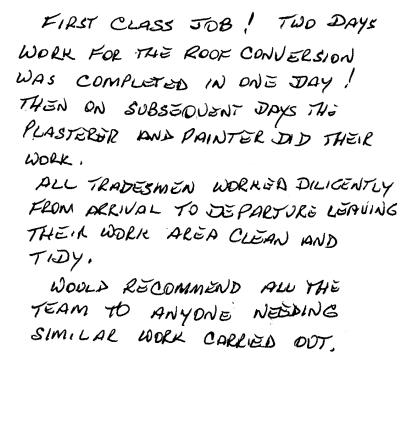 FIRST CLASS JOB! TWO DAYS
WORK FOR THE ROOF CONVERSION
WAS COMPLETED IN ONE DAY!
THEN ON SUBSEQUENT DAYS THE
PLASTERER AND PAINTER DID THEIR
WORK.
ALL TRADESMEN WORKED DILIGENTLY
FROM ARRIVAL TO DEPARTURE LEAVING
THEIR WORK AREA CLEAN AND
TIDY.
WOULD RECOMMEND ALL THE
TEAM TO ANYONE NEEDING
SIMILAR WORK CARRIED OUT.